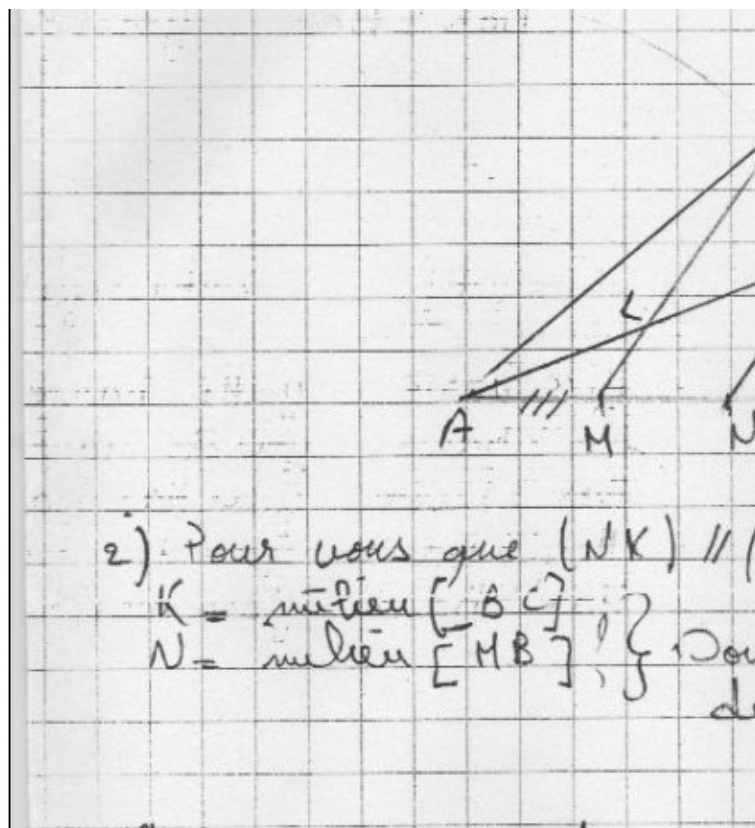 L
A M N
2) Pour vous que (NK) // (
K = milieu [BC]
N = milieu [MB] } Don
de